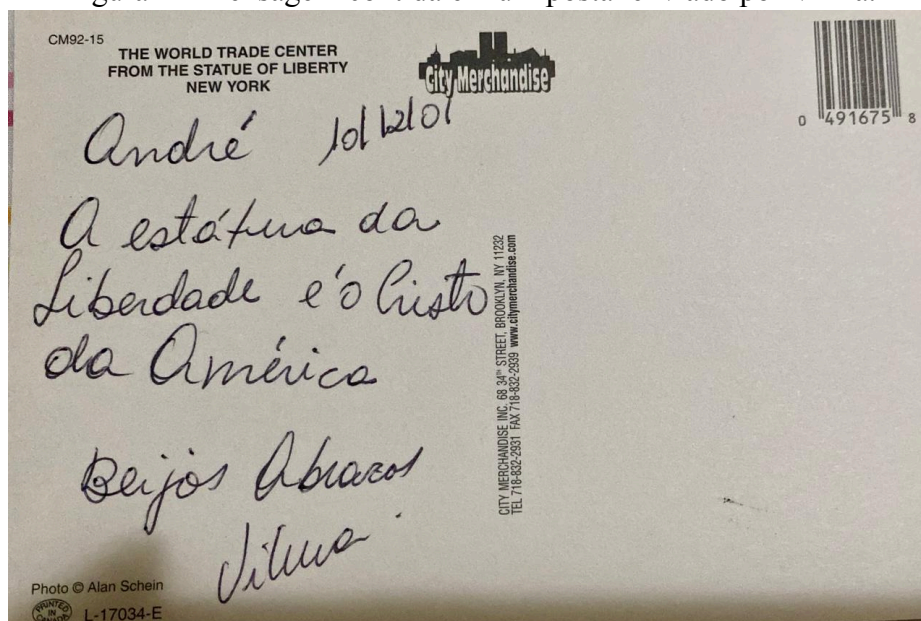 CM92-15
THE WORLD TRADE CENTER
FROM THE STATUE OF LIBERTY
NEW YORK
City Merchandise
0 491675 8
André 10/12/01
A estátua da
Liberdade é o Cristo
da América
Beijos Abraços
Vilma.
CITY MERCHANDISE INC. 68 34TH STREET, BROOKLYN, NY 11232
TEL 718-832-2931 FAX 718-832-2939 www.citymerchandise.com
Photo © Alan Schein
PRINTED
IN
CANADA
L-17034-E